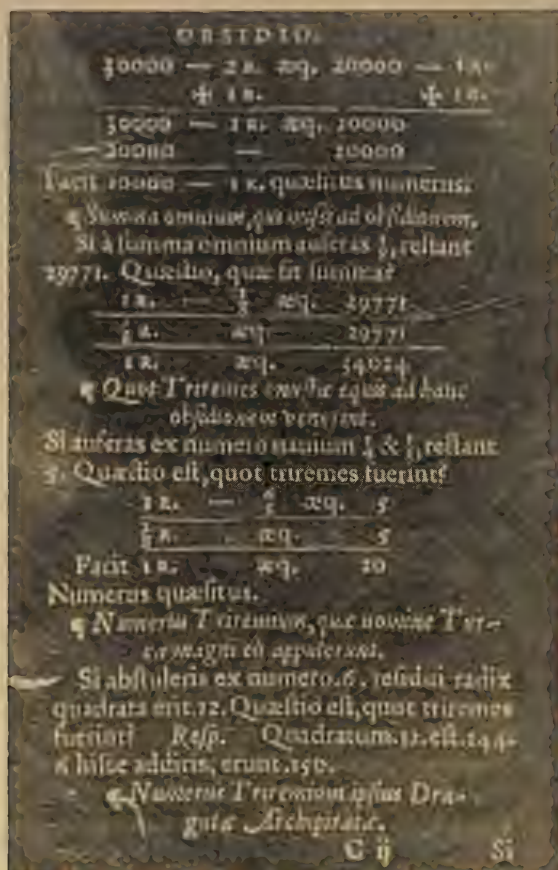 OBSIDIO.
30000 — 2 R. æq. 20000 — 1 R.
✠ 1 R. ✠ 1 R.
30000 — 1 R. æq. 20000
20000 — 20000
Facit 10000 — 1 R. quæsitus numerus.
¶ Summa omnium, qui ad obsidionem.
Si à summa omnium auferas restant
29771. Quæstio, quæ sit summa?
1 R. — æq. 29771
R. æq. 29771
1 R. æq. 54024
¶ Quot Triremes equis ad hanc
obsidionem venerint.
Si auferas ex numero nauium & restant
5. Quæstio est, quot triremes fuerint?
1 R. — æq. 5
R. æq. 5
Facit 1 R. æq. 20
Numerus quæsitus.
¶ Numerus Triremium, quæ nomine
magni eò appulerunt.
Si abstuleris ex numero .6. residui radix
quadrata erit .12. Quæstio est, quot triremes
fuerint? Resp. Quadratum .12. est .144.
6 hisce additis, erunt .150.
¶ Numerus Triremium ipsius Dra-
gutæ Archipiratæ.
G ij Si